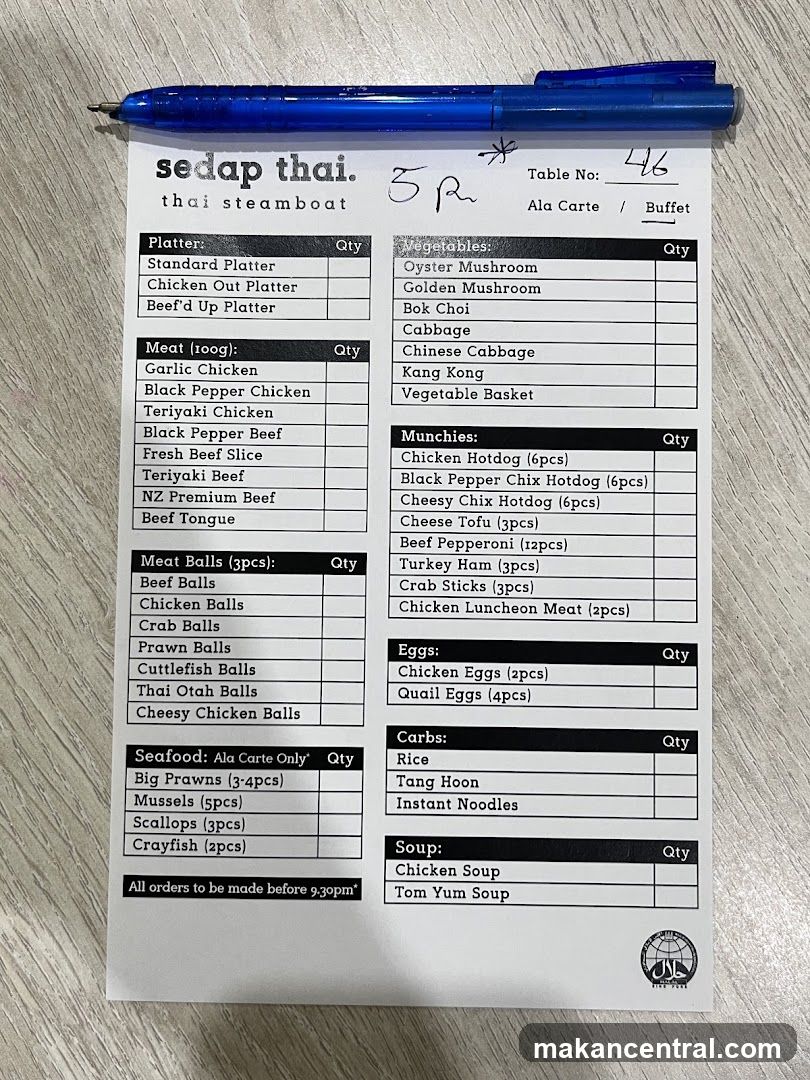 sedap thai.
thai steamboat
5 p
Table No: 46
Ala Carte / Buffet
Platter: Qty
Standard Platter
Chicken Out Platter
Beef'd Up Platter
Meat (100g): Qty
Garlic Chicken
Black Pepper Chicken
Teriyaki Chicken
Black Pepper Beef
Fresh Beef Slice
Teriyaki Beef
NZ Premium Beef
Beef Tongue
Meat Balls (3pcs): Qty
Beef Balls
Chicken Balls
Crab Balls
Prawn Balls
Cuttlefish Balls
Thai Otah Balls
Cheesy Chicken Balls
Seafood: Ala Carte Only* Qty
Big Prawns (3-4pcs)
Mussels (5pcs)
Scallops (3pcs)
Crayfish (2pcs)
All orders to be made before 9.30pm*
Vegetables: Qty
Oyster Mushroom
Golden Mushroom
Bok Choi
Cabbage
Chinese Cabbage
Kang Kong
Vegetable Basket
Munchies: Qty
Chicken Hotdog (6pcs)
Black Pepper Chix Hotdog (6pcs)
Cheesy Chix Hotdog (6pcs)
Cheese Tofu (3pcs)
Beef Pepperoni (12pcs)
Turkey Ham (3pcs)
Crab Sticks (3pcs)
Chicken Luncheon Meat (2pcs)
Eggs: Qty
Chicken Eggs (2pcs)
Quail Eggs (4pcs)
Carbs: Qty
Rice
Tang Hoon
Instant Noodles
Soup: Qty
Chicken Soup
Tom Yum Soup
حلال
HALAL
makancentral.com